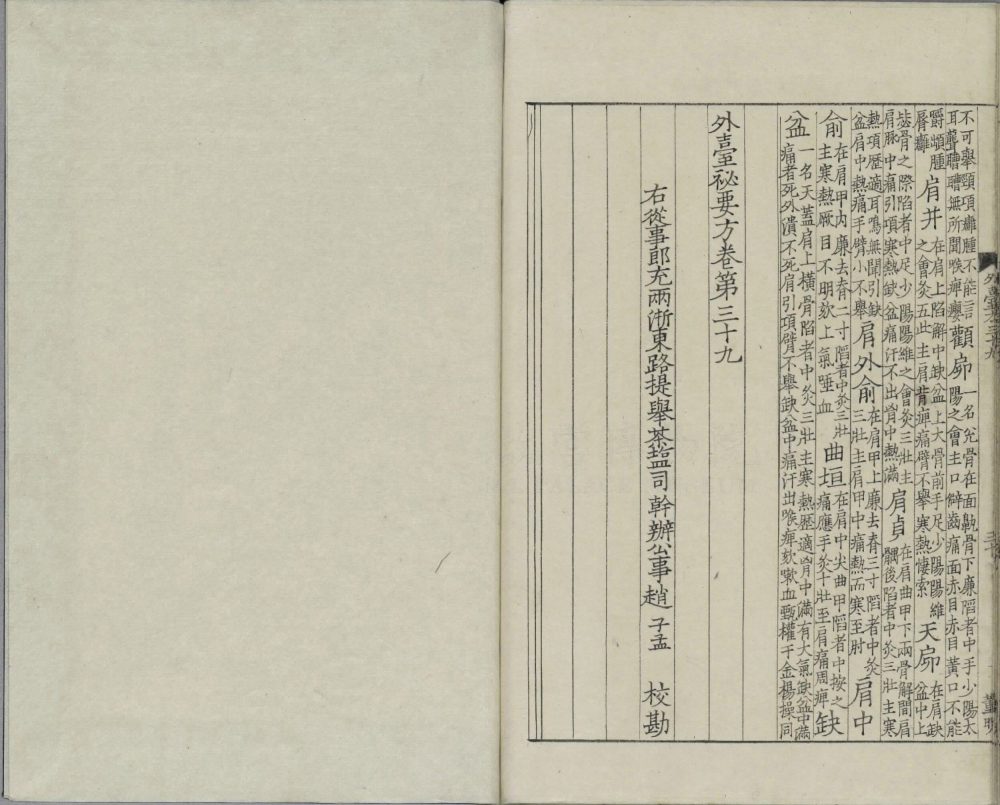 不可舉頸項癰腫不能言
耳聾聹聹無所聞喉痺癭
顴窌
一名兊骨在面鼽骨下廉陷者中手少陽太
陽之會主口僻齒痛面赤目赤目黃口不能
嚼䪼腫
脣癰
肩井
在肩上陷解中缺盆上大骨前手足少陽陽維
之會灸五壯主肩背痺痛臂不舉寒熱悽索
天窌
在肩缺
盆中上
毖骨之際陷者中足少陽陽維之會灸三壯主
肩脉中痛引項寒熱缺盆痛汗不出胷中熱滿
肩貞
在肩曲甲下兩骨解間肩
髃後陷者中灸三壯主寒
熱項歷適耳鳴無聞引缺
盆肩中熱痛手臂小不舉
肩外俞
在肩甲上廉去脊三寸陷者中灸
三壯主肩甲中痛熱而寒至肘
肩中
俞
在肩甲內廉去脊二寸陷者中灸三壯
主寒熱厥目不明欬上氣唾血
曲垣
在肩中尖曲甲陷者中按之
痛應手灸十壯至肩痛周痺
缺
盆
一名天蓋肩上橫骨陷者中灸三壯主寒熱歷適胷中滿有大氣缺盆中滿
痛者死外潰不死肩引項臂不舉缺盆中痛汗出喉痺欬嗽血甄權千金楊操同
外臺祕要方卷第三十九
右從事郎充兩浙東路提舉茶鹽司幹辦公事趙子孟校勘